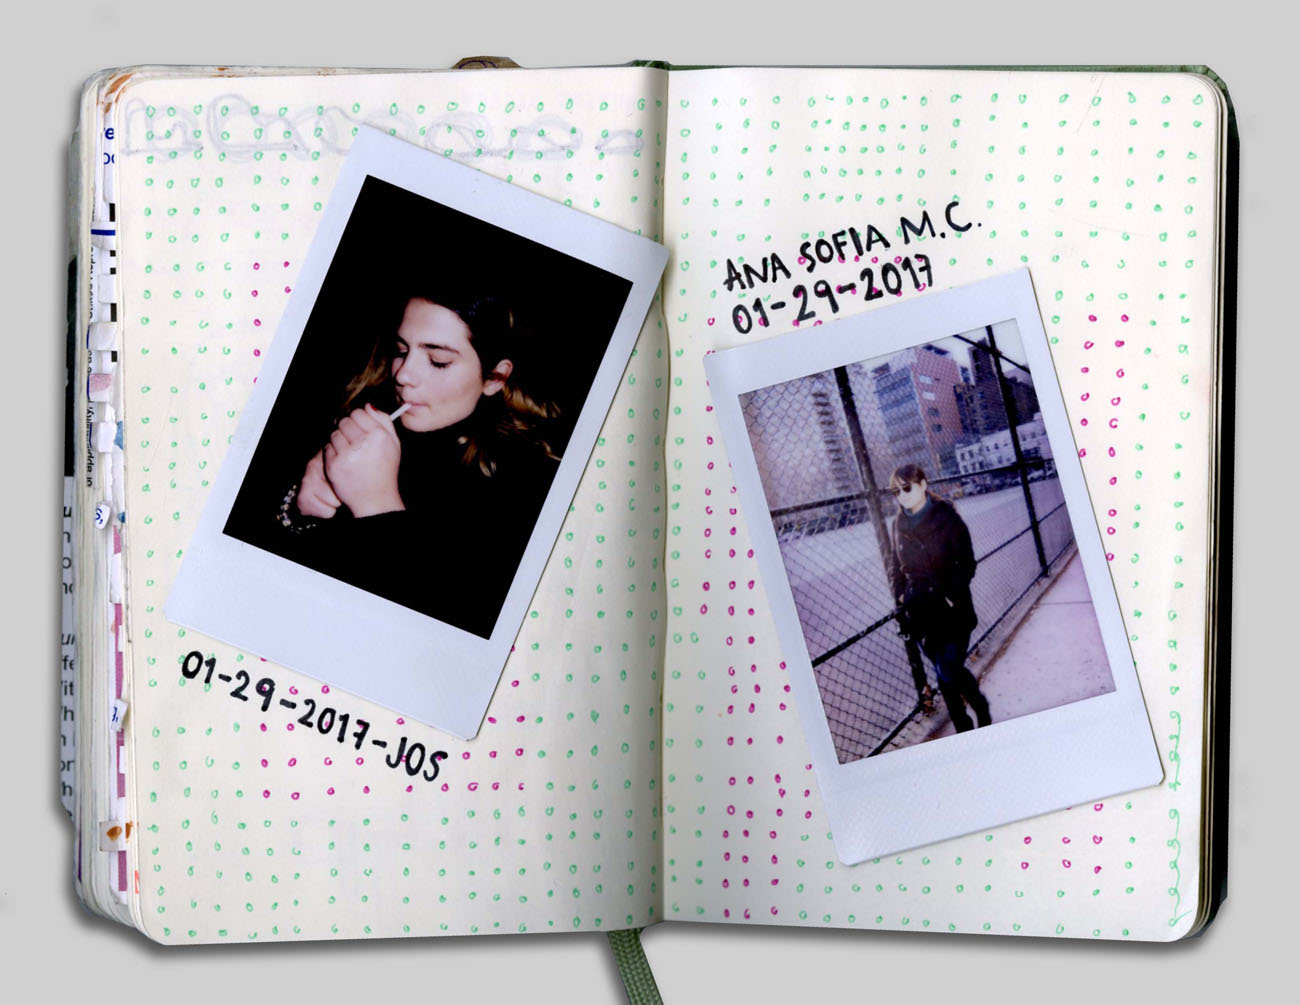 01-29-2017-JOS
ANA SOFIA M.C.
01-29-2017